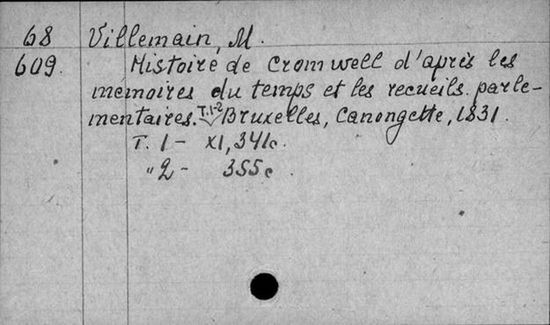 68 Villemain, M.
609. Histoire de Cromwell d'après les
mémoires du temps et les recueils parle-
mentaires. T.1-2 Bruxelles, Canongette, 1831.
T. 1 - XI, 341c.
" 2 - 355c.